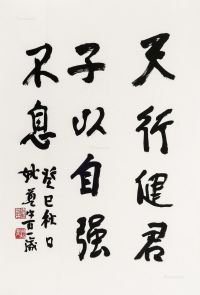 天行健君
子以自强
不息
癸巳秋日
姚奠中百一岁